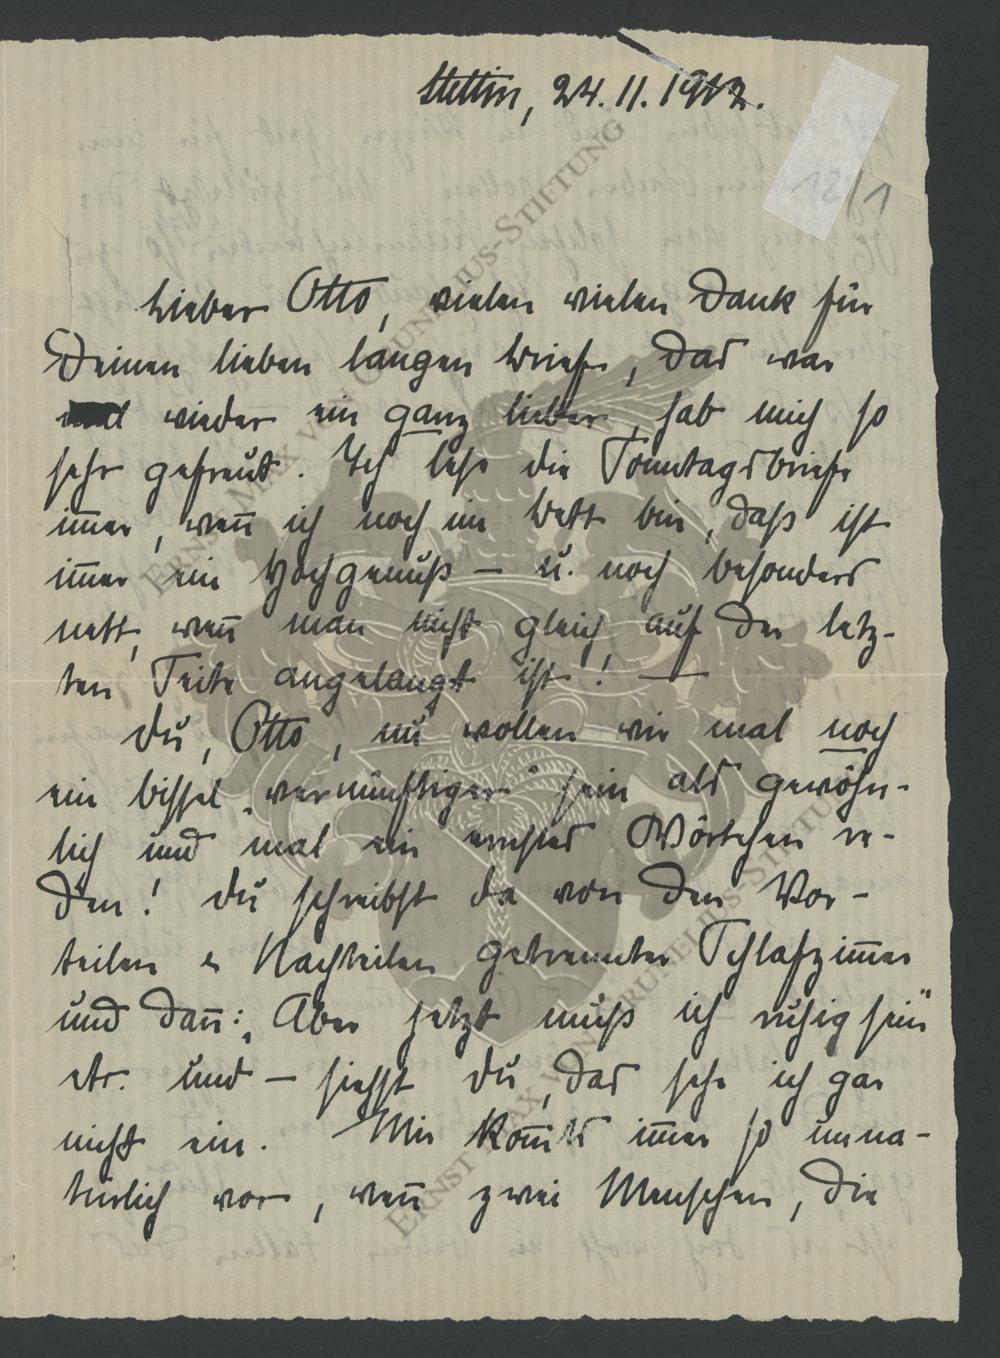 Stettin, 24.11.1912.
12/1
Lieber Otto, vielen vielen Dank für
Deinen lieben langen Brief, das war
wieder ein ganz lieber, hab mich so
sehr gefreut. Ich lese die Sonntagsbriefe
im̅er, wen̅ ich noch im Bett bin, daß ist
im̅er ein Hochgenuß – u. noch besonders
nett, wen̅ man nicht gleich auf der letz-
ten Seite angelangt ist! —
Du, Otto, nu wollen wir mal noch
ein bissel „vernünftiger" sein als gewöhn-
lich und mal ein ernstes Wörtchen re-
den! Du schreibst da von den Vor-
teilen & Nachteilen getrennter Schlafzim̅er
und dan̅: „Aber jetzt muß ich ruhig sein"
etc. und – siehst Du, das sehe ich gar
nicht ein. Mir kom̅ts im̅er so unna-
türlich vor, wen̅ zwei Menschen, die
ERNST MAX VON GRUNELIUS-STIFTUNG
ERNST MAX VON GRUNELIUS-STIFTUNG